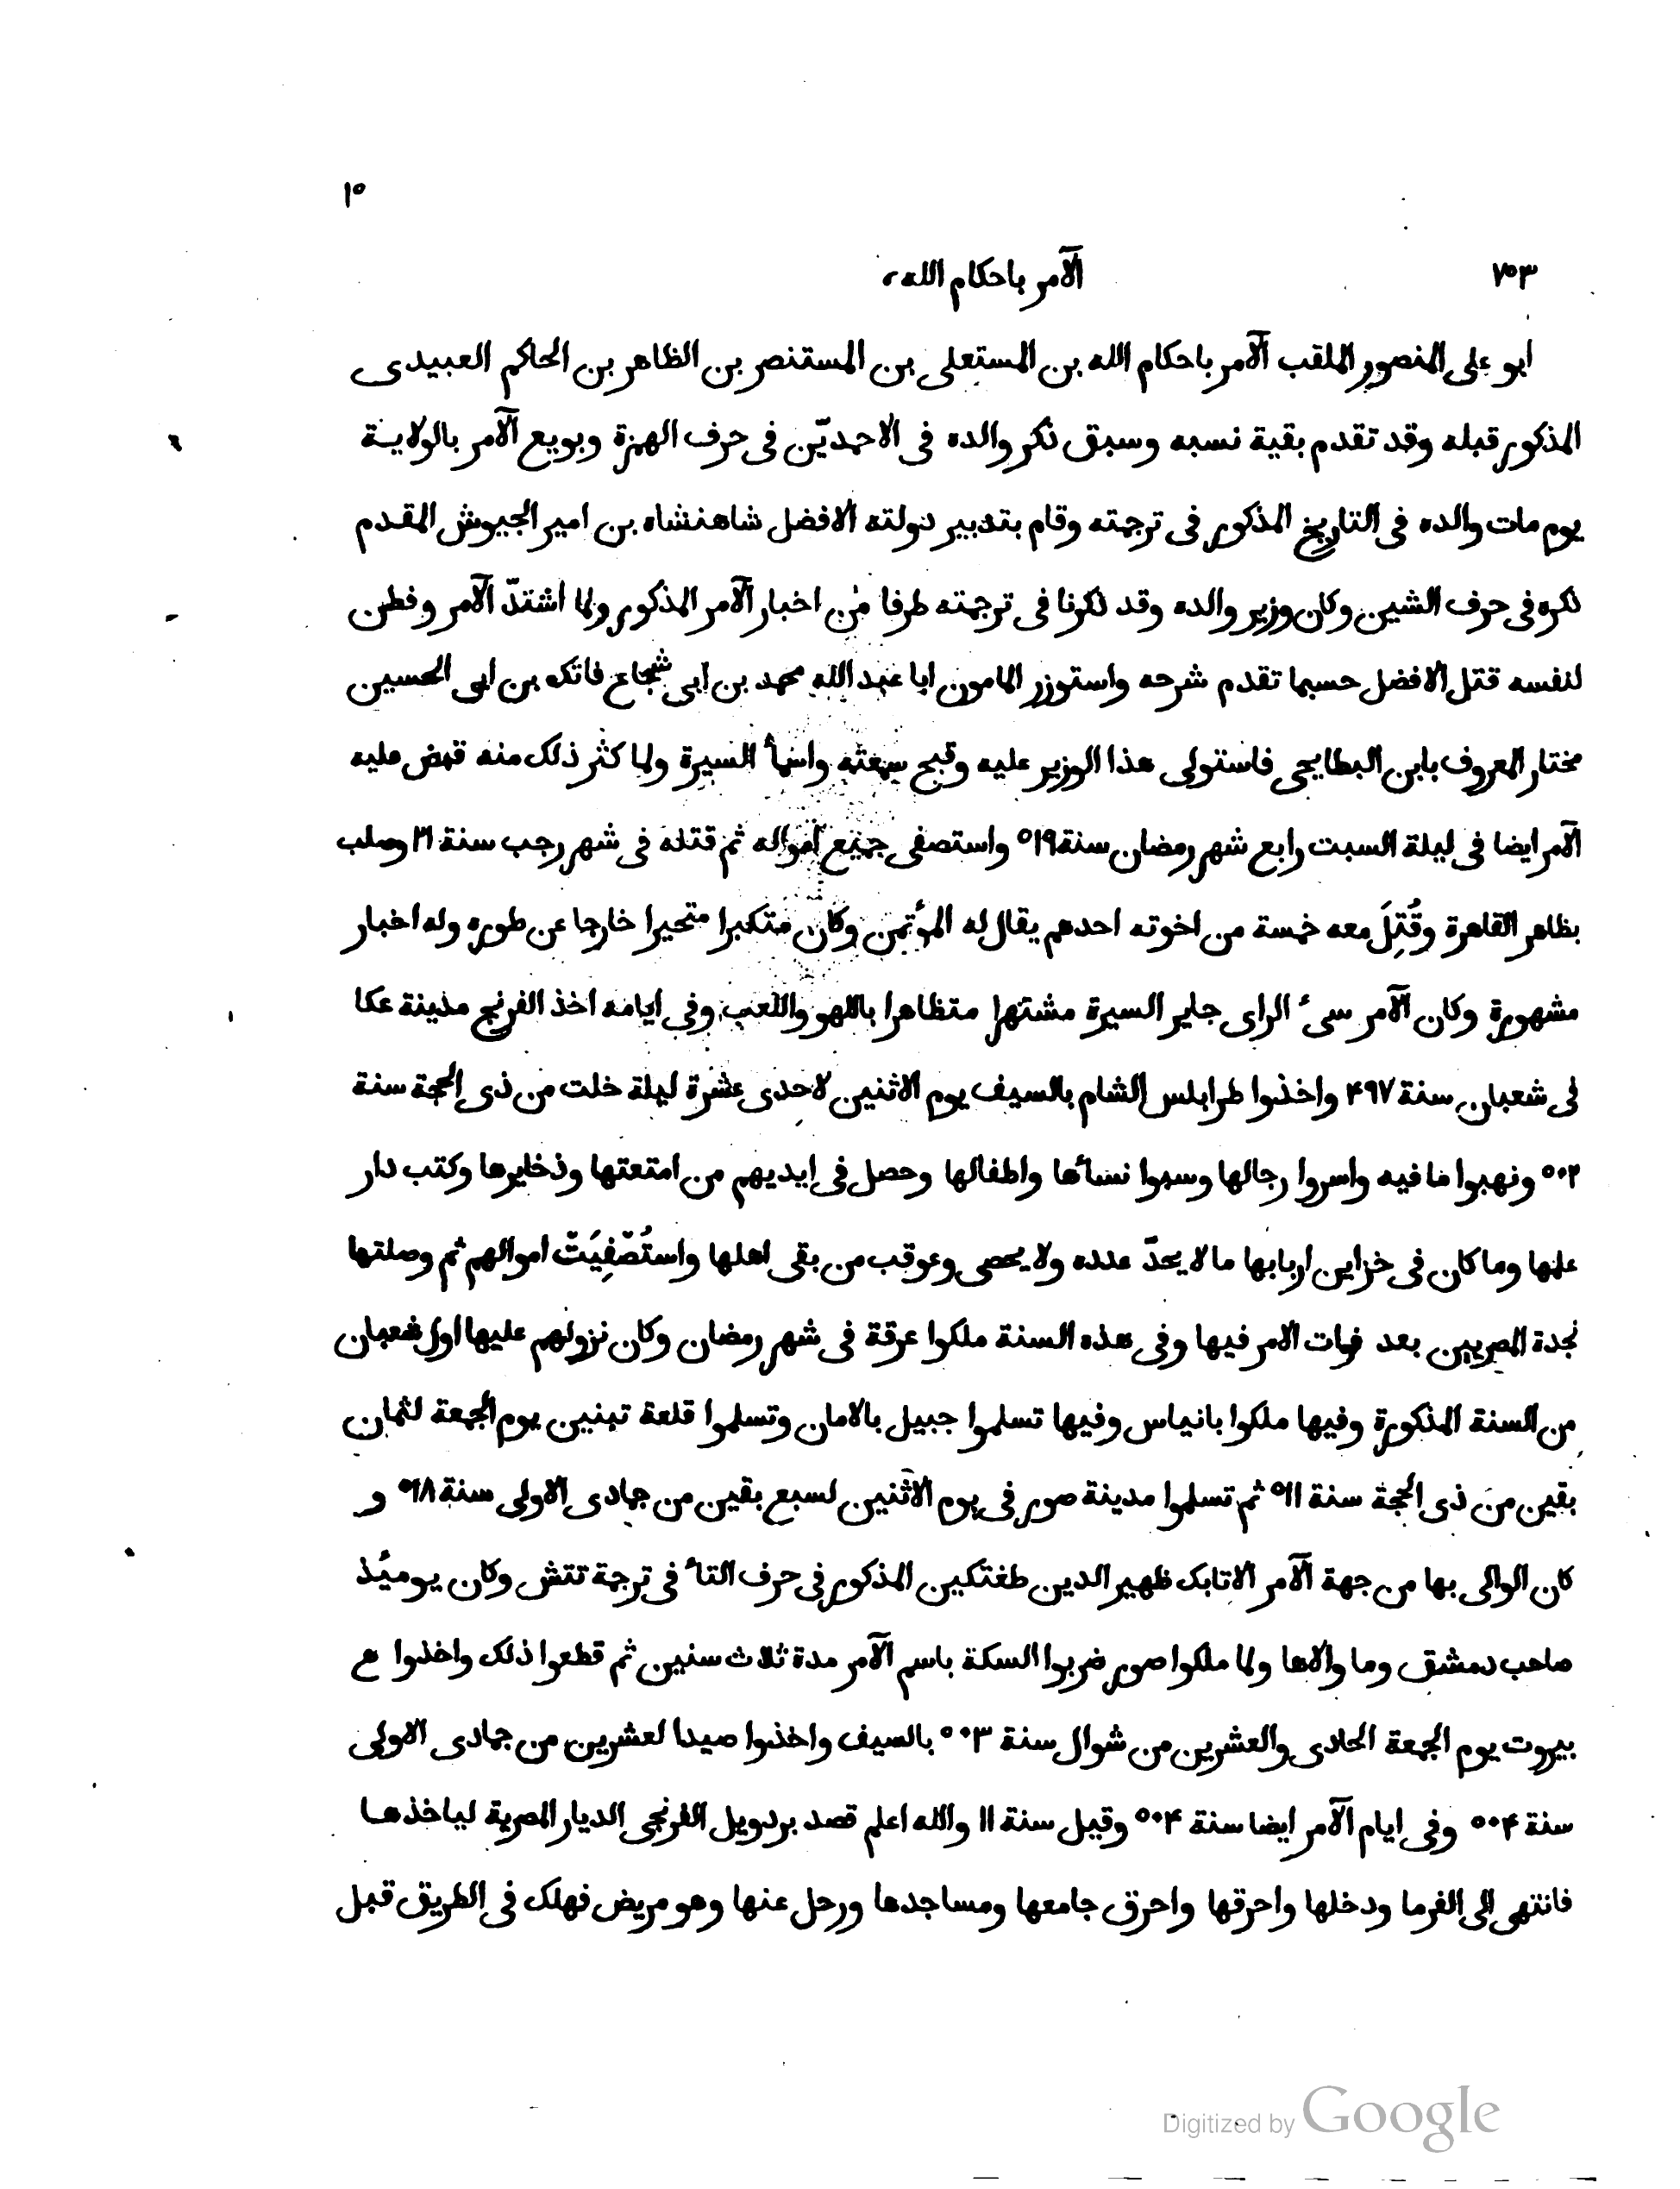 ١٥
٧٥٣ الآمر باحكام الله ،
ابو على المنصور الملقب الآمر باحكام الله بن المستعلى بن المستنصر بن الظاهر بن الحاكم العبيدى
المذكور قبله وقد تقدم بقية نسبه وسبق ذكر والده فى الاحمديّن فى حرف الهمزة وبويع الآمر بالولاية
يوم مات والده فى التاريخ المذكور فى ترجمته وقام بتدبير دولته الافضل شاهنشاه بن امير الجيوش المقدم
ذكره فى حرف الشين وكان وزير والده وقد ذكرنا فى ترجمته طرفا من اخبار الآمر المذكور ولما اشتدّ الآمر وفطن
لنفسه قتل الافضل حسبما تقدم شرحه واستوزر المامون ابا عبد الله محمد بن ابى شجاع فاتك بن ابى الحسين
مختار المعروف بابن البطايحى فاستولى هذا الوزير عليه وقبح سمعته واسأ السيرة ولما كثر ذلك منه قبض عليه
الآمر ايضا فى ليلة السبت رابع شهر رمضان سنة ٥١٩ واستصفى جميع امواله ثم قتله فى شهر رجب سنة ٢١ وصلب
بظاهر القاهرة وقُتِلَ معه خمسة من اخوته احدهم يقال له المؤتمن وكان متكبرا متحيرا خارجا عن طوره وله اخبار
مشهورة وكان الآمر سىء الراى جاير السيرة مشتهرا متظاهرا باللهو واللعب وفى ايامه اخذ الفرنج مدينة عكا
فى شعبان سنة ۴٩٧ واخذوا طرابلس الشام بالسيف يوم الاثنين لاحدى عشرة ليلة خلت من ذى الحجة سنة
٥٠٢ ونهبوا ما فيه واسروا رجالها وسبوا نسأها واطفالها وحصل فى ايديهم من امتعتها وذخايرها وكتب دار
علمها وما كان فى خزاين اربابها ما لا يحدّ عدده ولا يحصى وعوقب من بقى اهلها واستُصْفِيَتْ اموالهم ثم وصلتها
نجدة المصريين بعد فوات الامر فيها وفى هذه السنة ملكوا عرقة فى شهر رمضان وكان نزولهم عليها اول شعبان
من السنة المذكورة وفيها ملكوا بانياس وفيها تسلموا جبيل بالامان وتسلموا قلعة تبنين يوم الجمعة لثمان
بقين من ذى الحجة سنة ٥١١ ثم تسلموا مدينة صور فى يوم الاثنين لسبع بقين من جمادى الاولى سنة ٥١٨ و
كان الوالى بها من جهة الآمر الاتابك ظهير الدين طغتكين المذكور فى حرف التأ فى ترجمة تتش وكان يومئذ
صاحب دمشق وما والاها ولما ملكوا صور ضربوا السكة باسم الآمر مدة ثلاث سنين ثم قطعوا ذلك واخذوا
بيروت يوم الجمعة الحادى والعشرين من شوال سنة ٥٠٣ بالسيف واخذوا صيدا لعشرين من جمادى الاولى
سنة ٥٠۴ وفى ايام الآمر ايضا سنة ٥٠۴ وقيل سنة ١١ والله اعلم قصد بردويل الفرنجى الديار المصرية لياخذها
فانتهى الى الفرما ودخلها واحرقها واحرق جامعها ومساجدها ورحل عنها وهو مريض فهلك فى الطريق قبل
Digitized by Google